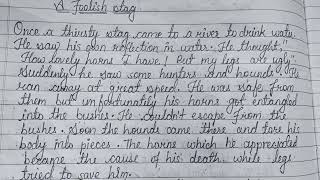 A foolish stag
Once a thirsty stag came to a river to drink water.
He saw his own reflection in water. He thought,"
How lovely horns I have! But my legs are ugly".
Suddenly he saw some hunters and hounds. He
ran away at great speed. He was safe from
them but unfortunatily his horns got entangled
into the bushes. He couldn't escape from the
bushes. Soon the hounds came there and tore his
body into pieces. The horns which he appreciated
became the cause of his death while legs
tried to save him.